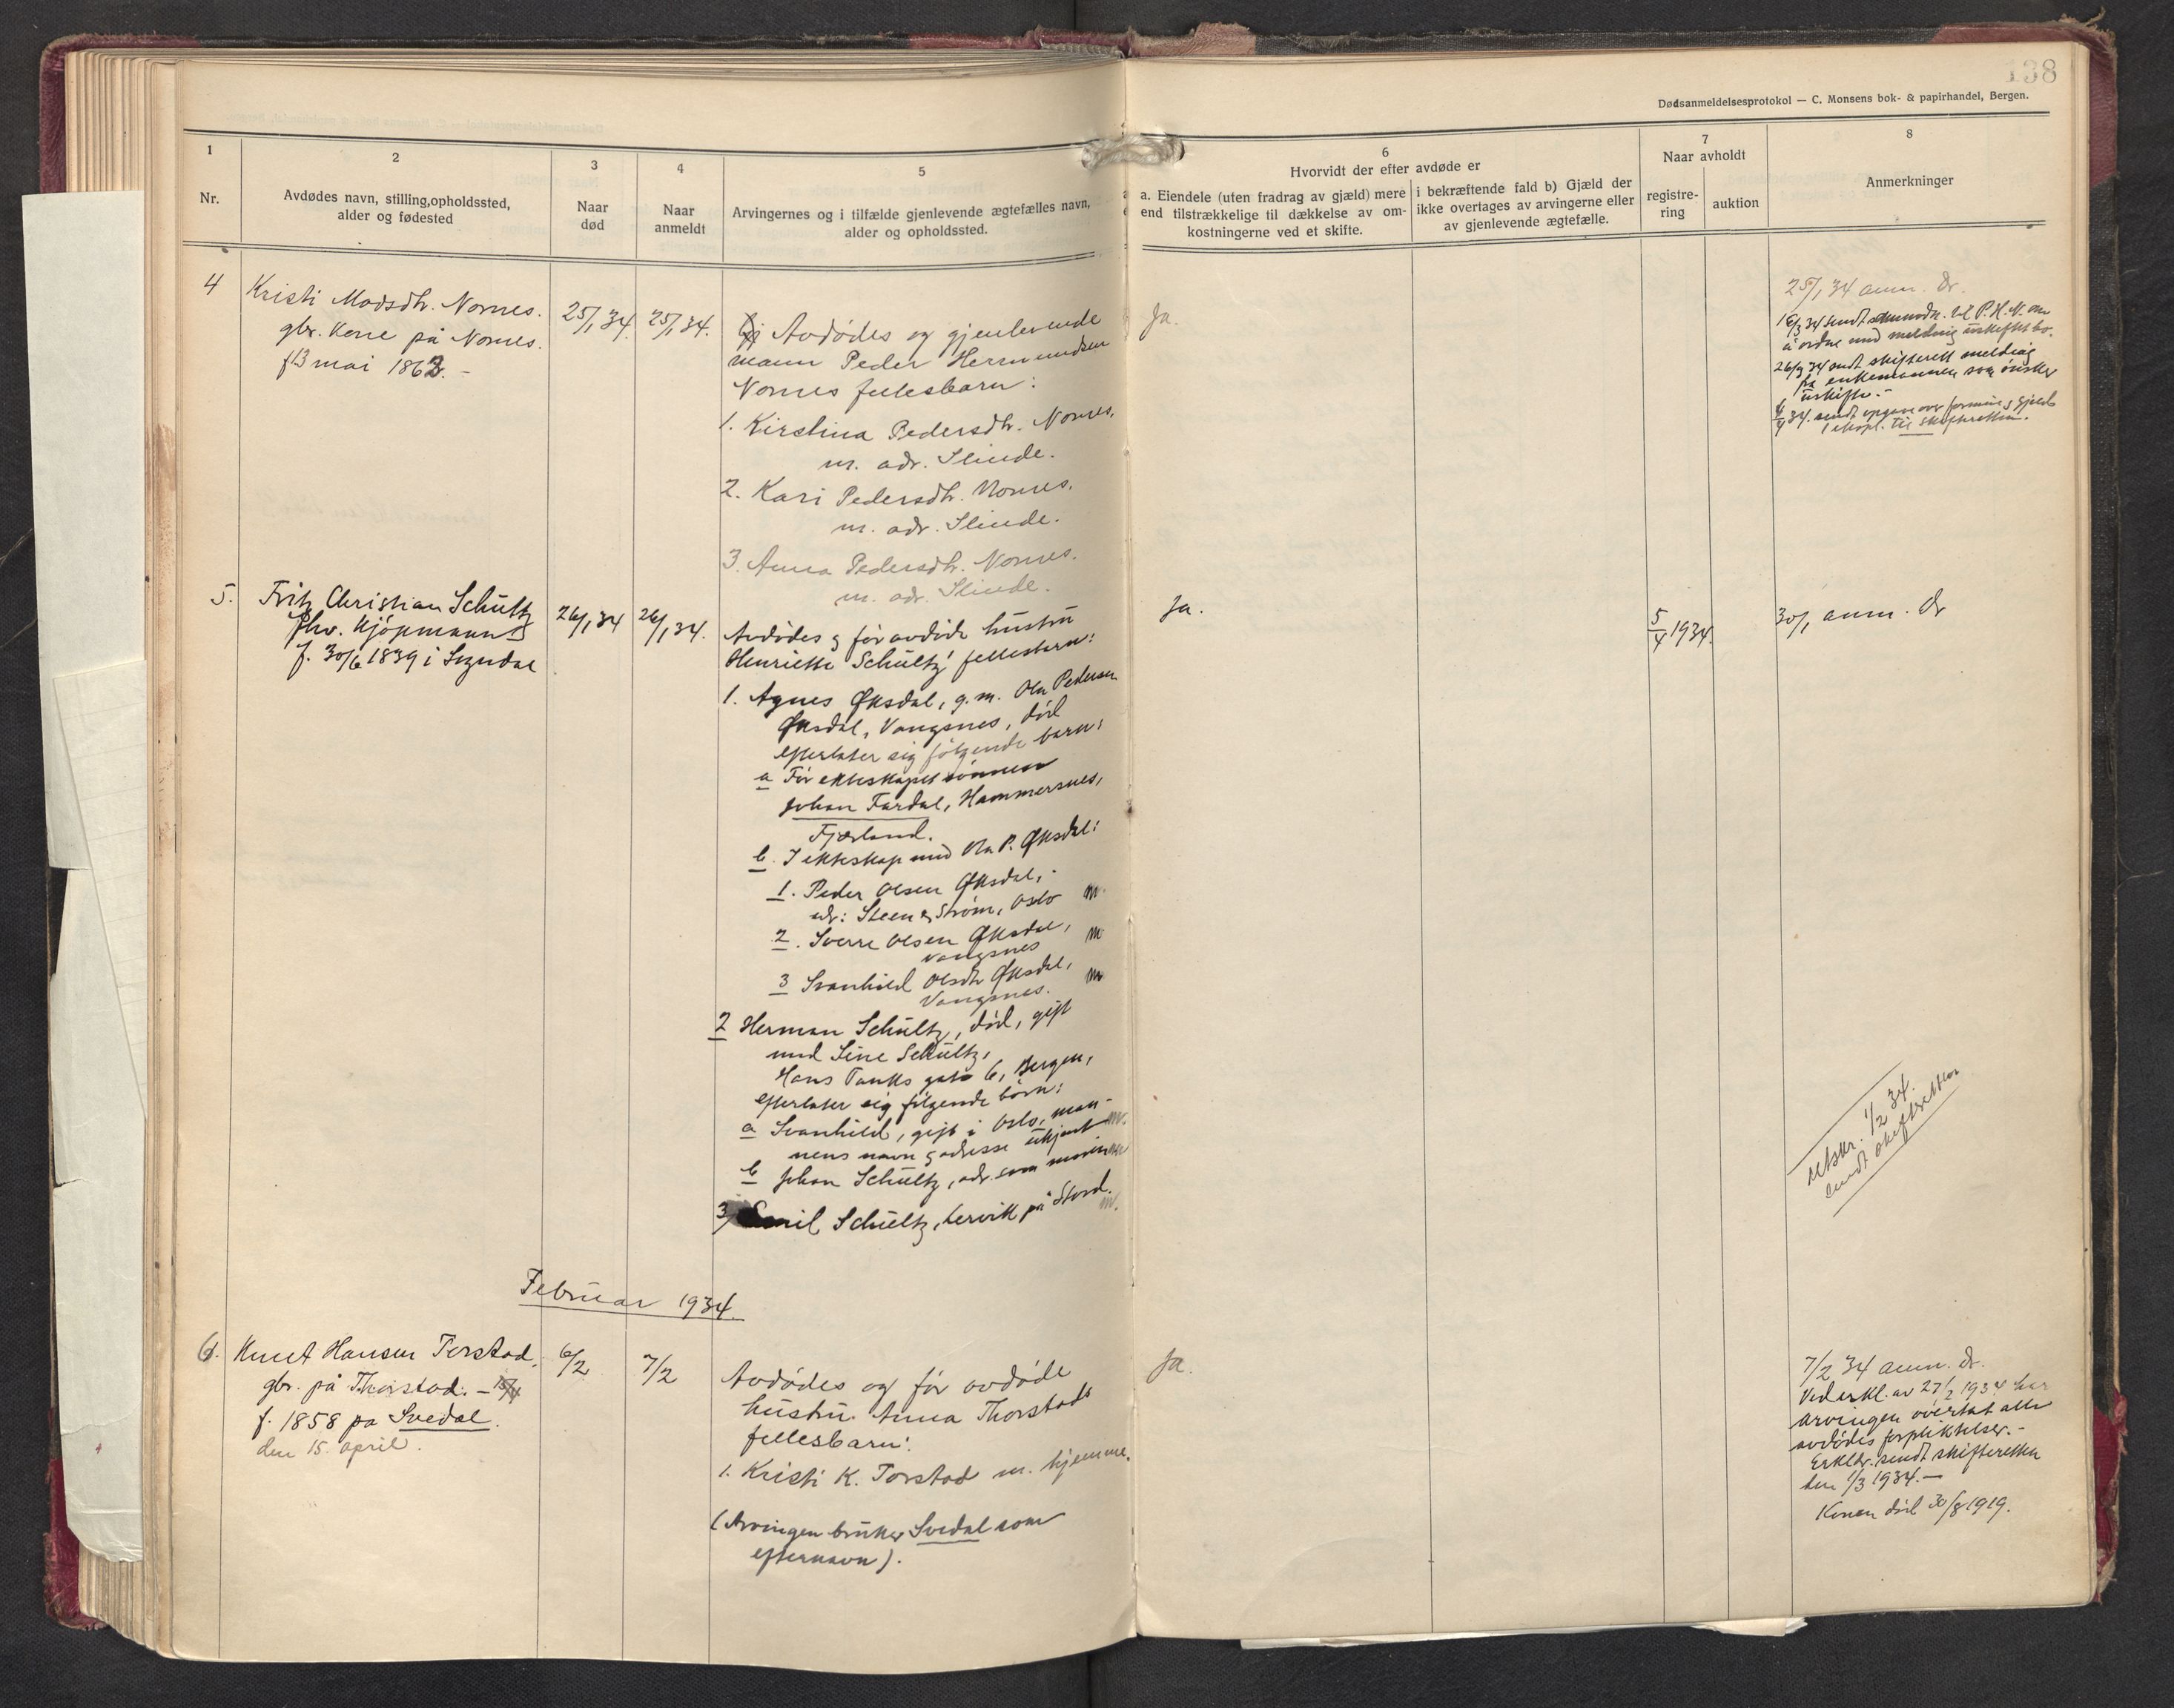 138
Dødsanmeldelsesprotokol — C. Monsens bok- & papirhandel, Bergen.
1
Nr.
2
Avdødes navn, stilling, opholdssted,
alder og fødested
3
Naar
død
4
Naar
anmeldt
5
Arvingernes og i tilfælde gjenlevende ægtefælles navn,
alder og opholdssted.
6
Hvorvidt der efter avdøde er
a. Eiendele (uten fradrag av gjæld) mere
end tilstrækkelige til dækkelse av om-
kostningerne ved et skifte.
i bekræftende fald b) Gjæld der
ikke overtages av arvingerne eller
av gjenlevende ægtefælle.
7
Naar avholdt
registre-
ring
auktion
8
Anmerkninger
4
Kristi Madsdtr. Nornes.
gbr. kone på Nornes.
f 13 mai 1863. –
25/1 34.
25/1 34.
Avdødes og gjenlevende
mann Peder Hermundsen
Nornes fellesbarn:
1. Kirstina Pedersdtr. Nornes,
m. adr. Slinde.
2. Kari Pedersdtr. Nornes.
m. adr. Slinde.
3. Anna Pedersdtr. Nornes.
m. adr. Slinde.
Ja.
25/1 34 anm. Dr.
16/3 34 sendt til P. H. N. om
å ordne med melding uskiftet bo.
26/3 34 sendt skifterett melding
fra enkemannen som ønsker
uskifte. –
4/4 34. sendt opgave over formue og gjeld
1 ekspl. til skifteretten.
5.
Fritz Christian Schultz
fhv. kjøpmann
f. 30/6 1839 i Sogndal
26/1 34
26/1 34.
Avdødes og før avdøde hustru
Henriette Schultz' fellesbarn:
1. Agnes Øksdal, g. m. Ola Pedersen
Øksdal, Vangsnes, død
efterlater sig følgende barn:
a Før ekteskapet sønnen
Johan Fardal, Hammersnes,
Fjærland.
b. I ekteskap med Ola P. Øksdal:
1. Peder Olsen Øksdal,
adr: Steen & Strøm, Oslo m.
2. Sverre Olsen Øksdal, m.
Vangsnes
3 Svanhild Olsdtr Øksdal, m.
Vangsnes.
2 Herman Schultz, død, gift
med Sine Schultz,
Hans Tanks gate 6, Bergen,
efterlater sig følgende børn:
a Svanhild, gift i Oslo, man-
nens navn og adresse ukjent m.
b Johan Schultz, adr. som moren
3/ Emil Schultz, Lervik på Stord. m.
Ja.
5/4 1934.
30/1 anm. Dr
utskr. 1/2 34.
sendt skifteretten
Februar 1934
6.
Knut Hansen Torstad,
gbr. på Thorstad. –
f. 1858 på Svedal.
den 15. april.
6/2
7/2
Avdødes og før avdøde
hustru Anna Thorstads
fellesbarn:
1. Kristi K. Torstad m. hjemme.
(Arvingen bruker Svedal som
efternavn).
Ja.
7/2 34 anm. Dr.
Ved erkl. av 27/2 1934 har
arvingen overtat alle
avdødes forpliktelser. –
Erklær. sendt skifteretten
den 1/3 1934. –
Konen død 30/8 1919.